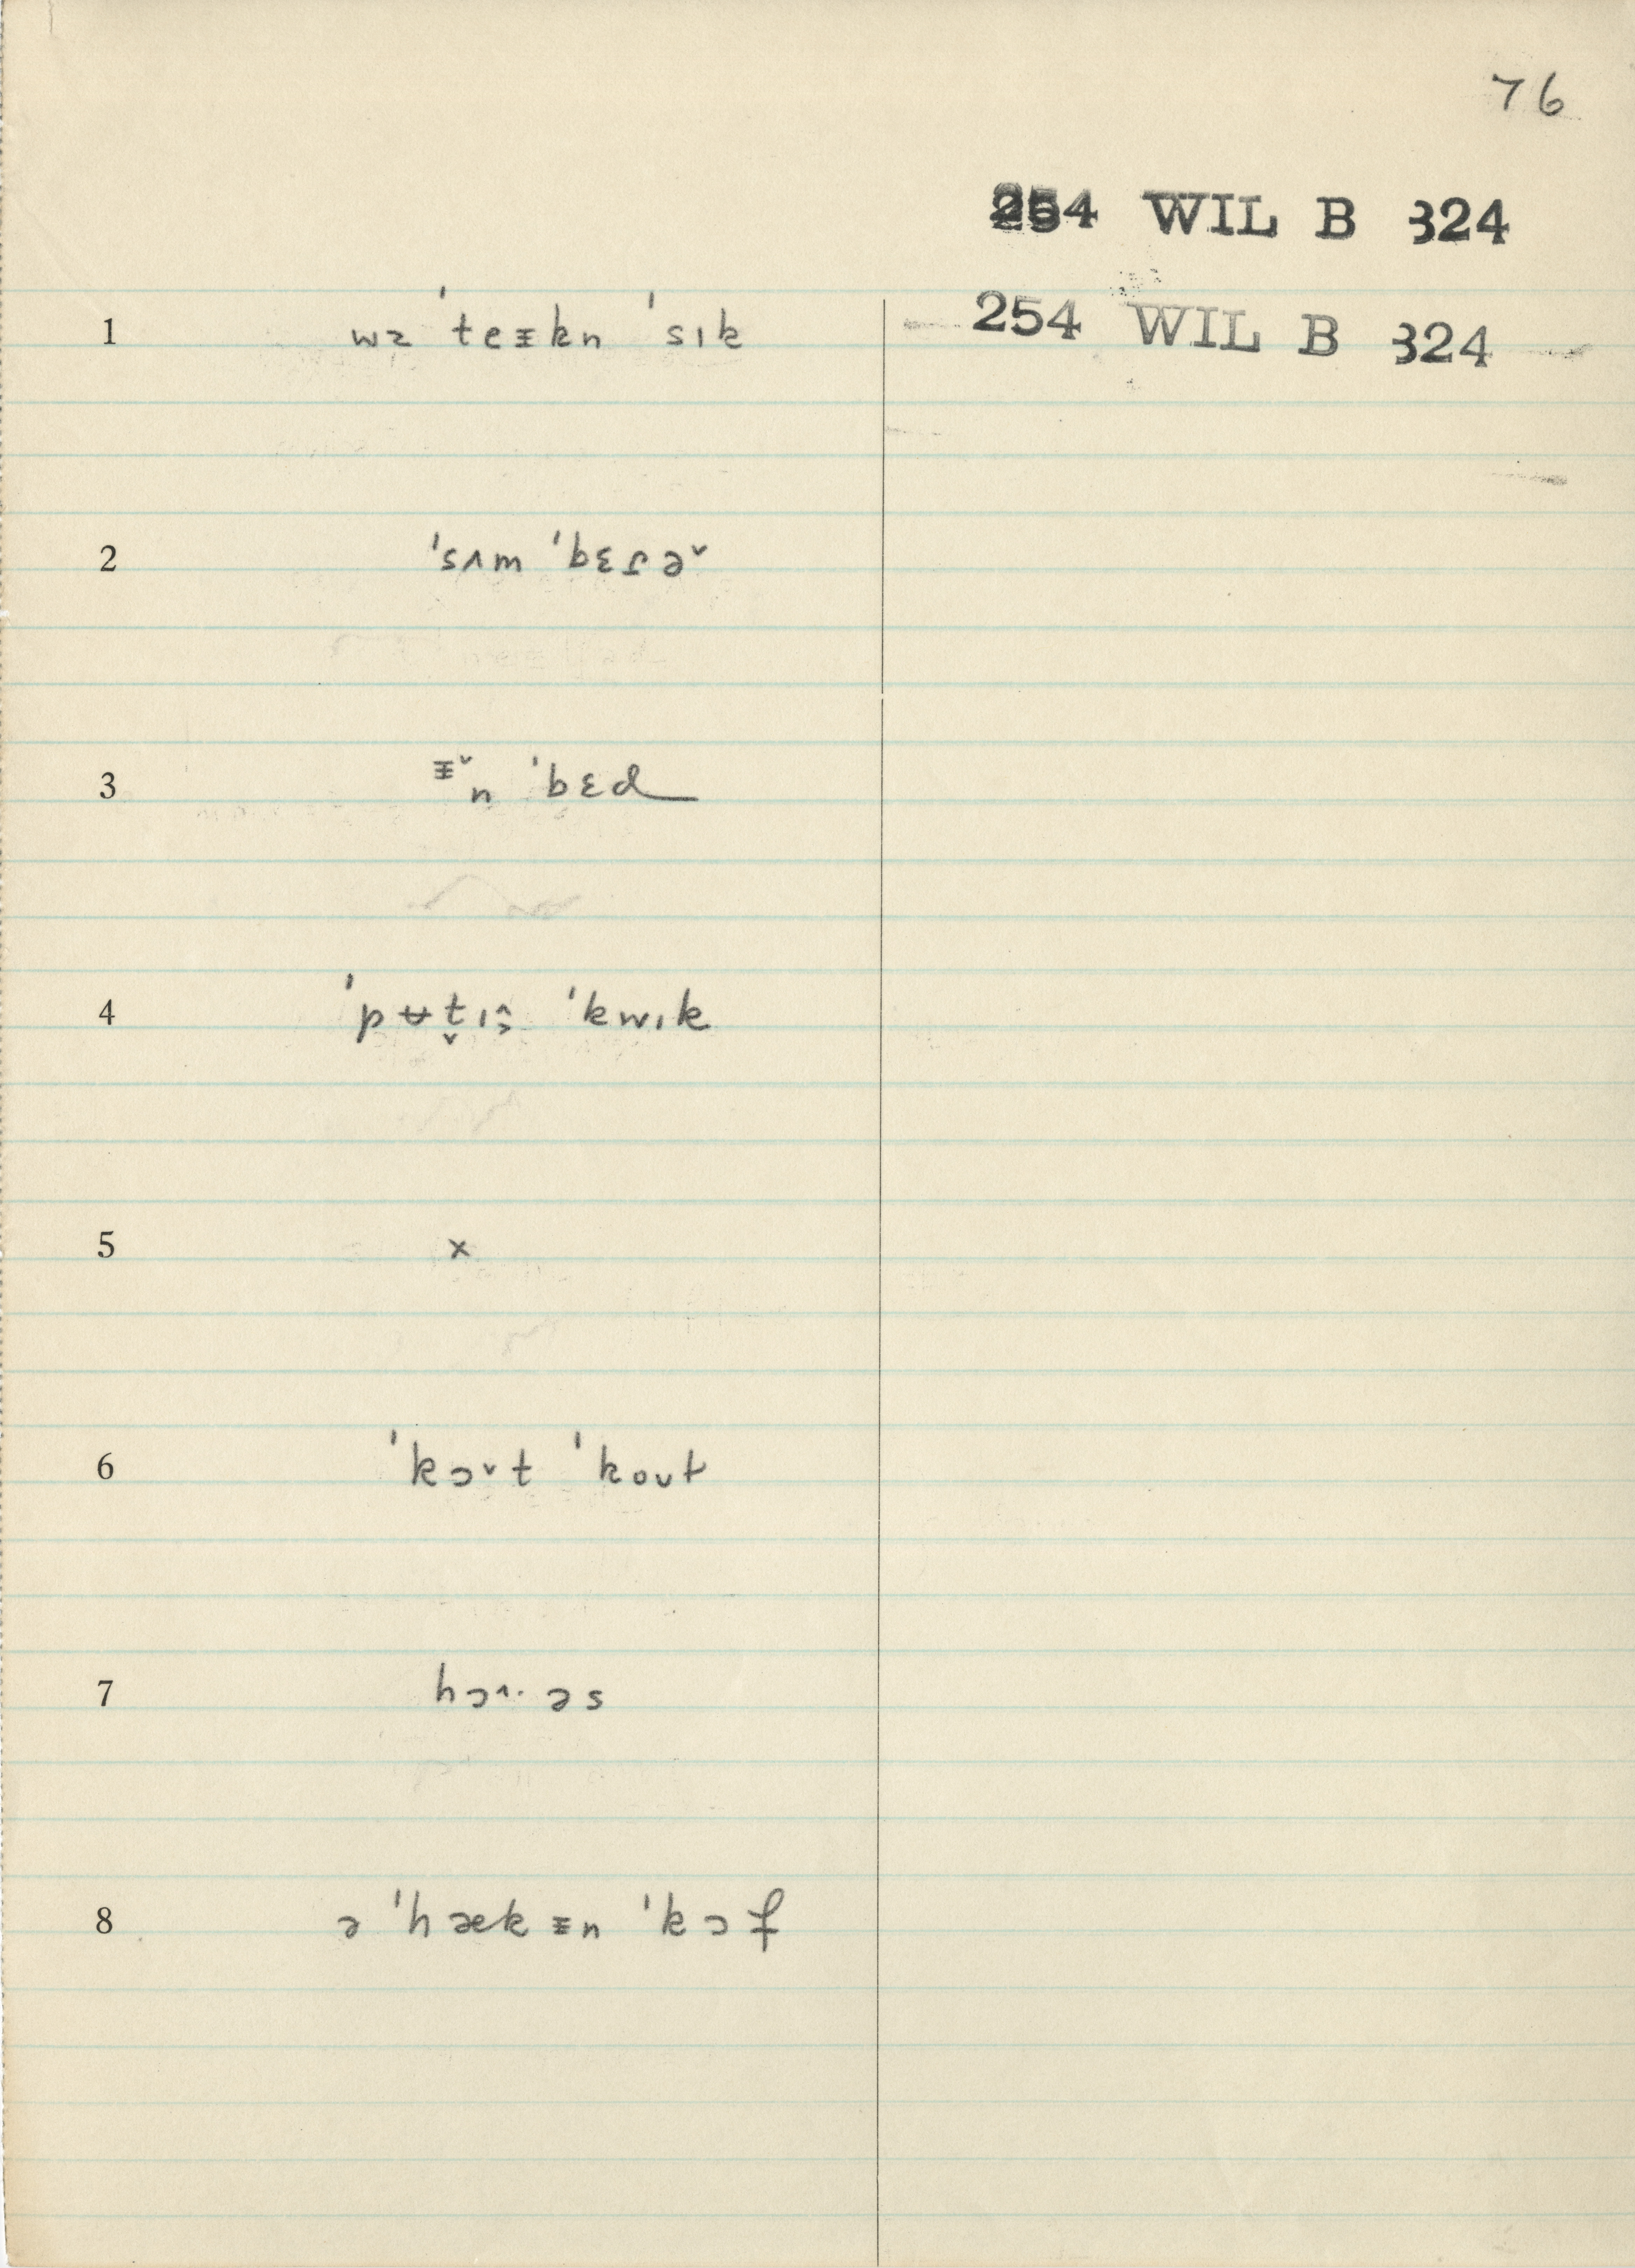 76
254 WIL B 324
254 WIL B 324
1 wɜ ˈteᵻkn ˈsɪk
2 ˈsʌm ˈbɛɾə˅
3 ᵻ˅n ˈbɛd
4 ˈpʉt̬ɪ ˈkwɪk
5 x
6 ˈkɔ˅t ˈkoʊt
7 hɔ˄· əs
8 ə ˈhækᵻn ˈkɔf